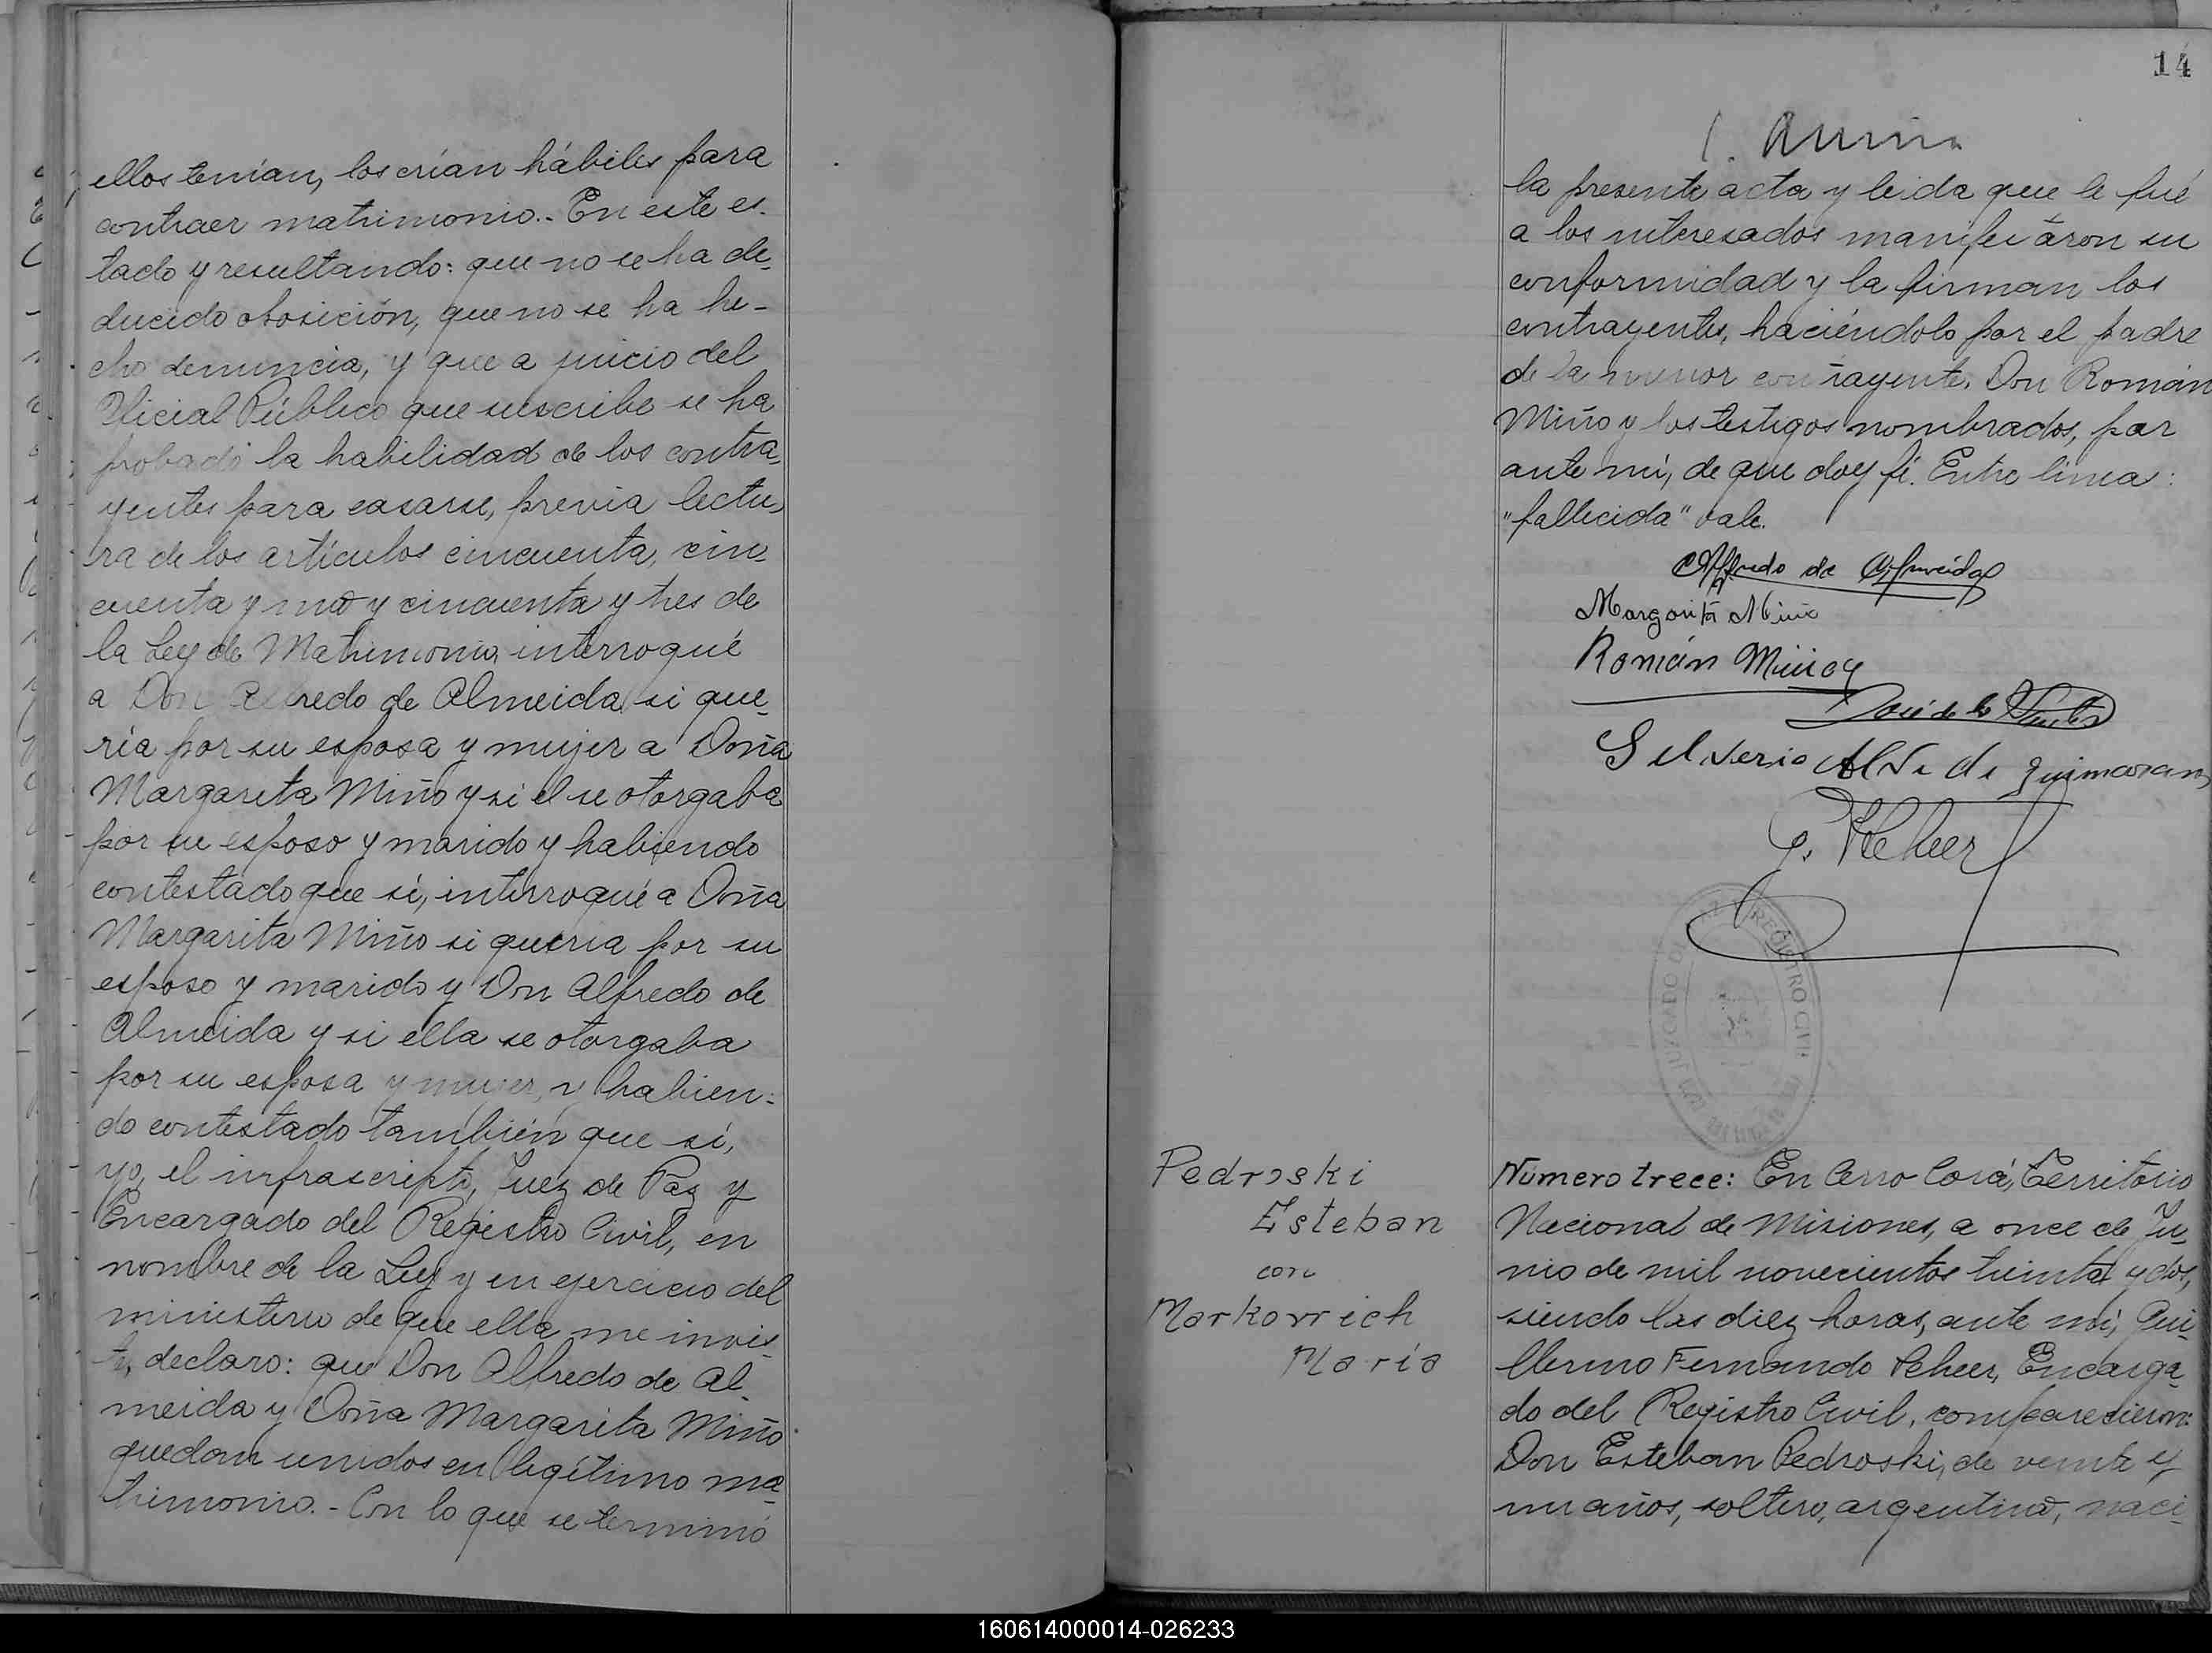 ellos tenían, los crían hábiles para
contraer matrimonio.- En este es-
tado y resultando: que no se ha de-
ducido oposición, que no se ha he-
cho denuncia, y que a juicio del
Oficial Público que suscribe se ha
probado la habilidad de los contra-
yentes para casarse, previa lectu-
ra de los artículos cincuenta, cin-
cuenta y uno y cincuenta y tres de
la Ley de Matrimonio, interrogué
a Don Alfredo de Almeida si que-
ría por su esposa y mujer a Doña
Margarita Miño y si el se otorgaba
por su esposo y marido y habiendo
contestado que sí, interrogué a Doña
Margarita Miño si quería por su
esposo y marido y Don Alfredo de
Almeida y si ella se otorgaba
por su esposa y mujer, y habien-
do contestado también que sí,
yo, el infrascripto, Juez de Paz y
Encargado del Registro Civil, en
nombre de la Ley y en ejercicio del
ministerio de que ella me invis-
te, declaro: que Don Alfredo de Al-
meida y Doña Margarita Miño
quedan unidos en legítimo ma-
trimonio.- Con lo que se terminó
14
la presente acta y leida que le fué
a los interesados manifestaron su
conformidad y la firman los
contrayentes, haciéndolo por el padre
de la menor contrayente, Don Román
Miño y los testigos nombrados, por
ante mí, de que doy fé. Entre línea:
"fallecida" vale.
Alfredo de Almeida
Margarita Miño
Román Miño
José de
Silverio Alve de Guimaraes
G. Scheer
REGISTRO CIVIL
JUZGADO DE
Pedroski
Esteban
con
Markovrich
María
Número trece: En Cerro Corá, Territorio
Nacional de Misiones, a once de Ju-
nio de mil novecientos treinta y dos,
siendo las diez horas, ante mí, Gui-
llermo Fernando Scheer, Encarga-
do del Registro Civil, comparecieron:
Don Esteban Pedroski, de veinte y
un años, soltero, argentino, naci-
160614000014-026233